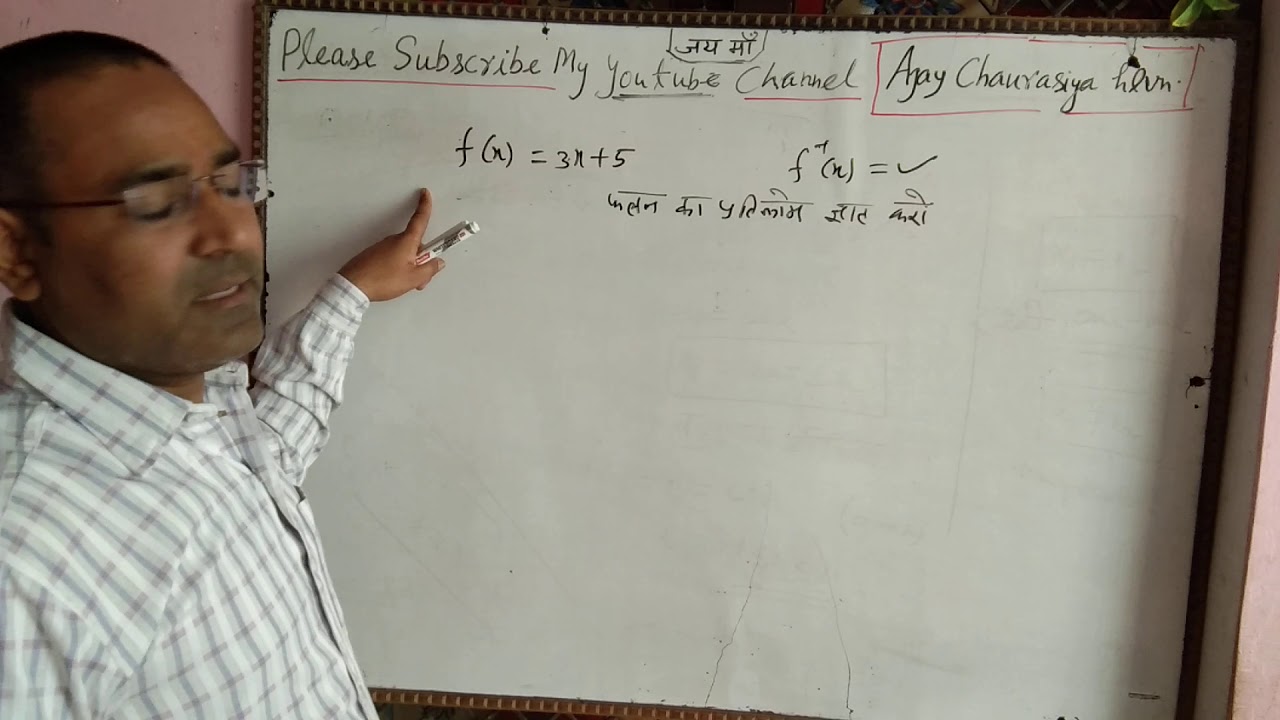 जय माँ
Please Subscribe My Youtube Channel Ajay Chaurasiya
f(x) = 3x+5 f⁻¹(x) = ✓
फलन का प्रतिलोम ज्ञात करो